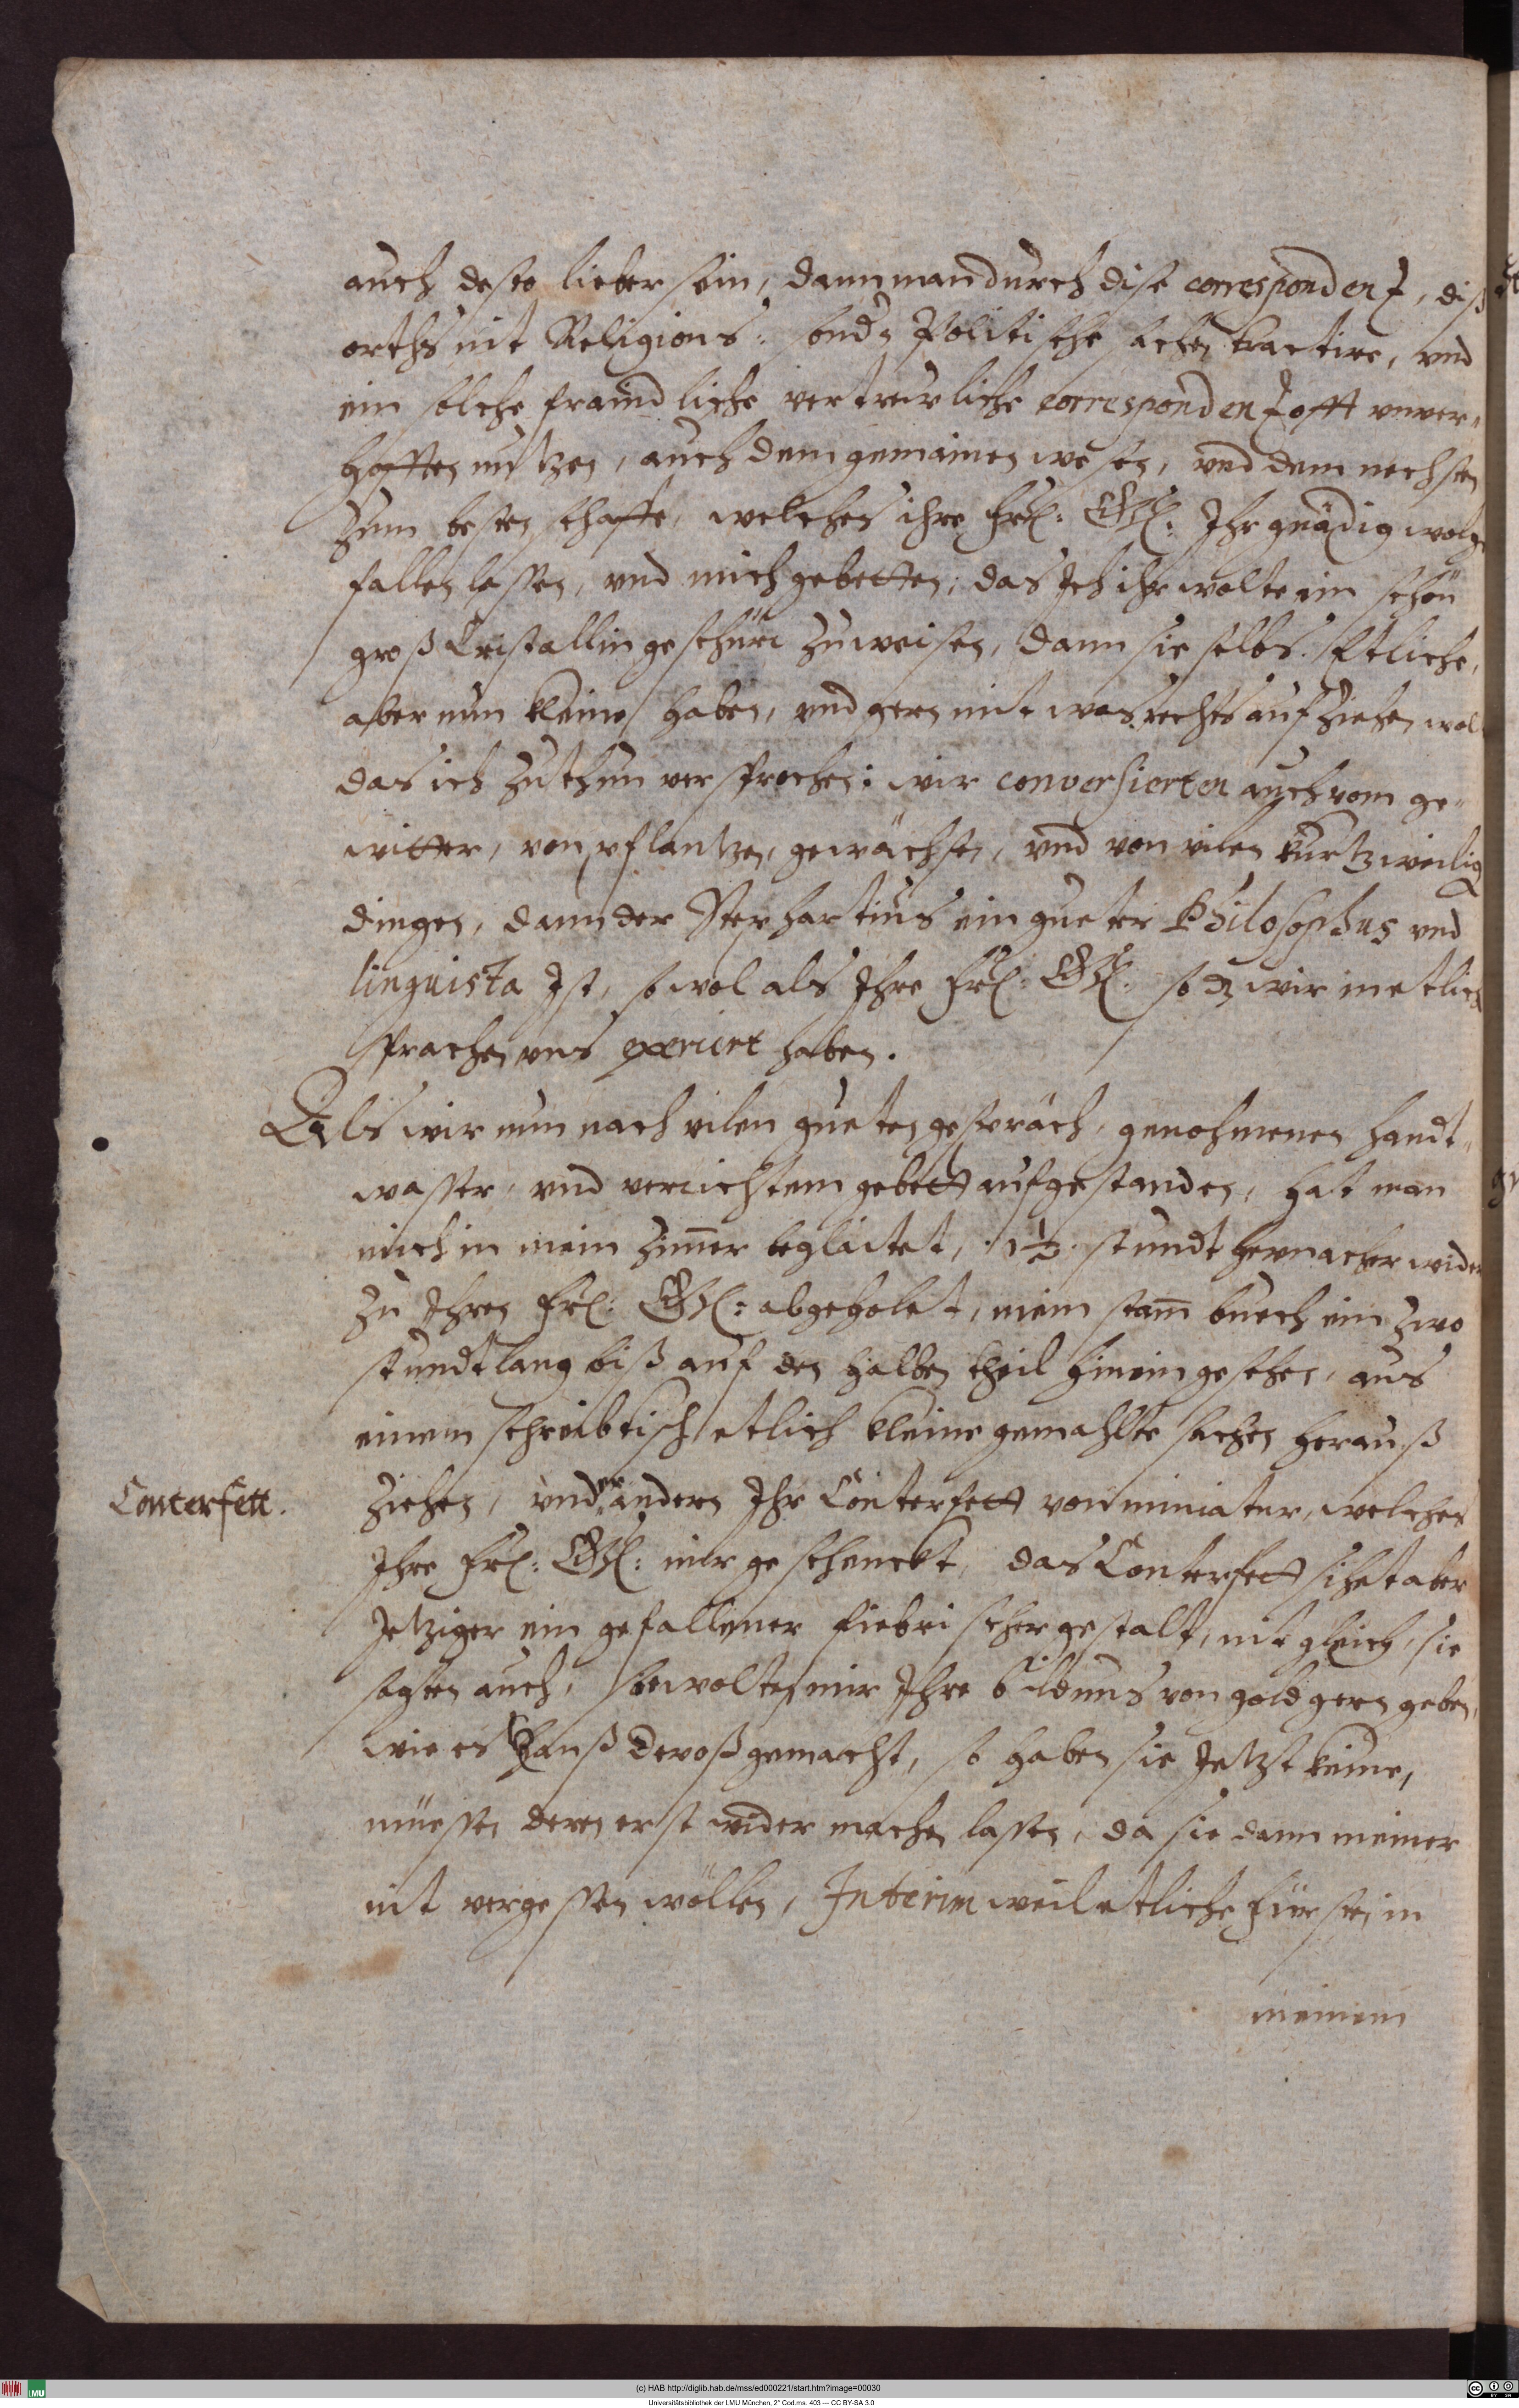 auch desto lieber sein, dann man durch dise correspondenz, diß
orths nit Religions: sonder Politische sachen tractire, vnd
ein solche fraindliche vertrewliche correspondenz offt vnver-
hofften nutzen, auch dem gemainen wesen, vnd dem nechsten
zum besten schaffe, welches ihre Frl: Gn: Ihr gnädig wolge
fallen lassen, vnd mich gebetten, das Ich ihr wolte ein schön
groß Cristallin geschürr zuweisen, dann sie selbs etliche,
aber nun kleine haben, vnd gern mit was rechts aufziehen wol
das ich zuthun versprochen: wir conversierten auch vom ge-
witter, von pflantzen, gewächsen, vnd von vilen kurtzweilig
dingen, dann der ein gueter Philosophus vnd
linguista Ist, so wol als Ihre Frl: Gn: so dz wir in etlich
sprachen vns exerciert haben.
Als wir nun nach vilen gueten gespräch, genohmenen handt-
wasser, vnd verrichtem gebett aufgestanden, hat man
mich in mein zimer beglaitet, .1½. stundt hernacher wider
zu Ihren Frl: Gn: abgeholet, mein stam buech ein zwo
stundt lang biß auf den halben theil hinein gesehen, aus
einem schreibtisch etlich kleine gemahlte sachen herauß
Conterfett.
ziehen, vnder andern Ihr Conterfett von miniatur, welches
Ihre Frl: Gn: mir geschenckt, das Conterfett sihet aber
Jetziger ein gefallener fiebrischer gestalt, nit gleich, sie
sagten auch, sie wolten mir Ihre bildnus von gold gern geben,
wie es Hanß Devoß gemacht, so haben sie Jetzt keine,
müessen deren erst wider machen lassen, da sie dann meiner
nit vergessen wöllen, Interim weil etliche Fürsten in
meinem
(c) HAB http://diglib.hab.de/mss/ed000221/start.htm?image=00030
Universitätsbibliothek der LMU München, 2° Cod.ms. 403 — CC BY-SA 3.0